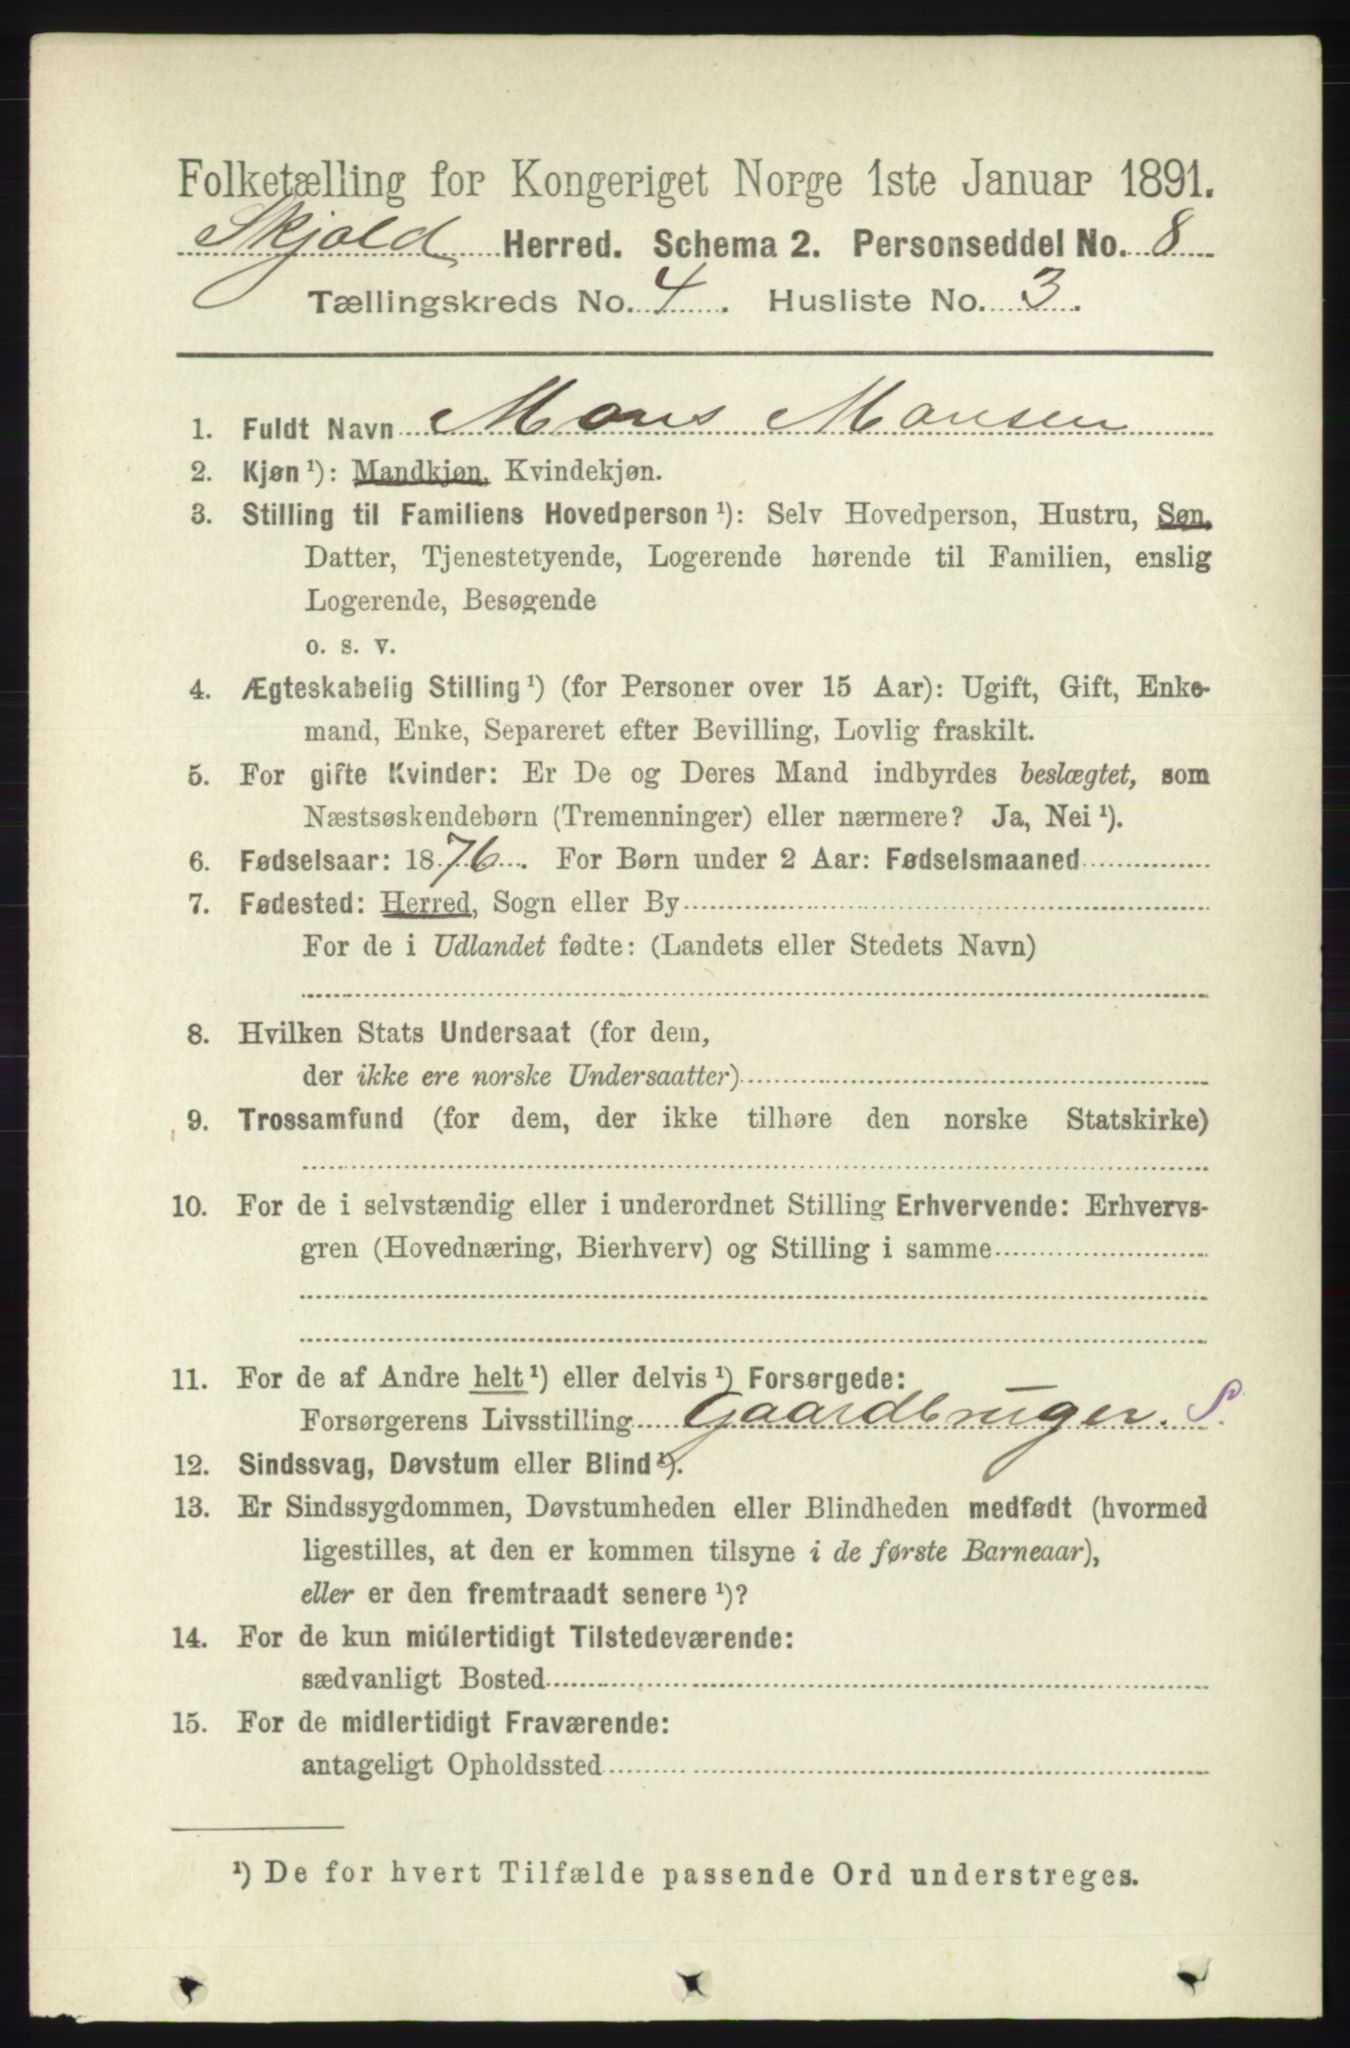 Folketælling for Kongeriget Norge 1ste Januar 1891.
Skjold Herred. Schema 2. Personseddel No. 8
Tællingskreds No. 4. Husliste No. 3.
1. Fuldt Navn Mons Monsen
2. Kjøn ¹): Mandkjøn, Kvindekjøn.
3. Stilling til Familiens Hovedperson ¹): Selv Hovedperson, Hustru, Søn,
Datter, Tjenestetyende, Logerende hørende til Familien, enslig
Logerende, Besøgende
o. s. v.
4. Ægteskabelig Stilling ¹) (for Personer over 15 Aar): Ugift, Gift, Enke-
mand, Enke, Separeret efter Bevilling, Lovlig fraskilt.
5. For gifte Kvinder: Er De og Deres Mand indbyrdes beslægtet, som
Næstsøskendebørn (Tremenninger) eller nærmere? Ja, Nei ¹).
6. Fødselsaar: 1876. For Børn under 2 Aar: Fødselsmaaned
7. Fødested: Herred, Sogn eller By
For de i Udlandet fødte: (Landets eller Stedets Navn)
8. Hvilken Stats Undersaat (for dem,
der ikke ere norske Undersaatter)
9. Trossamfund (for dem, der ikke tilhøre den norske Statskirke)
10. For de i selvstændig eller i underordnet Stilling Erhvervende: Erhvervs-
gren (Hovednæring, Bierhverv) og Stilling i samme
11. For de af Andre helt ¹) eller delvis ¹) Forsørgede:
Forsørgerens Livsstilling Gaardbruger. S.
12. Sindssvag, Døvstum eller Blind ¹).
13. Er Sindssygdommen, Døvstumheden eller Blindheden medfødt (hvormed
ligestilles, at den er kommen tilsyne i de første Barneaar),
eller er den fremtraadt senere ¹)?
14. For de kun midlertidigt Tilstedeværende:
sædvanligt Bosted
15. For de midlertidigt Fraværende:
antageligt Opholdssted
¹) De for hvert Tilfælde passende Ord understreges.